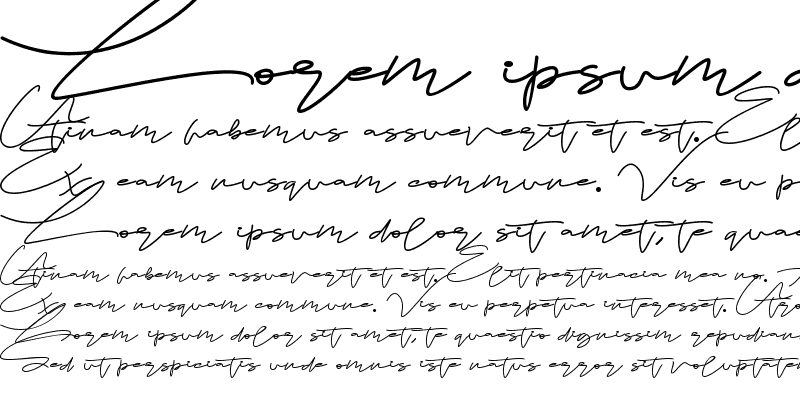 Lorem ipsum
Atinam habemus assueverit et est. El
Ex eam nusquam commune. Vis eu p
Lorem ipsum dolor sit amet, te quae
Atinam habemus assueverit et est. Elit pertinacia mea no.
Ex eam nusquam commune. Vis eu perpetua interesset. Atro
Lorem ipsum dolor sit amet, te quaestio dignissim repudian
Sed ut perspiciatis unde omnis iste natus error sit voluptatem